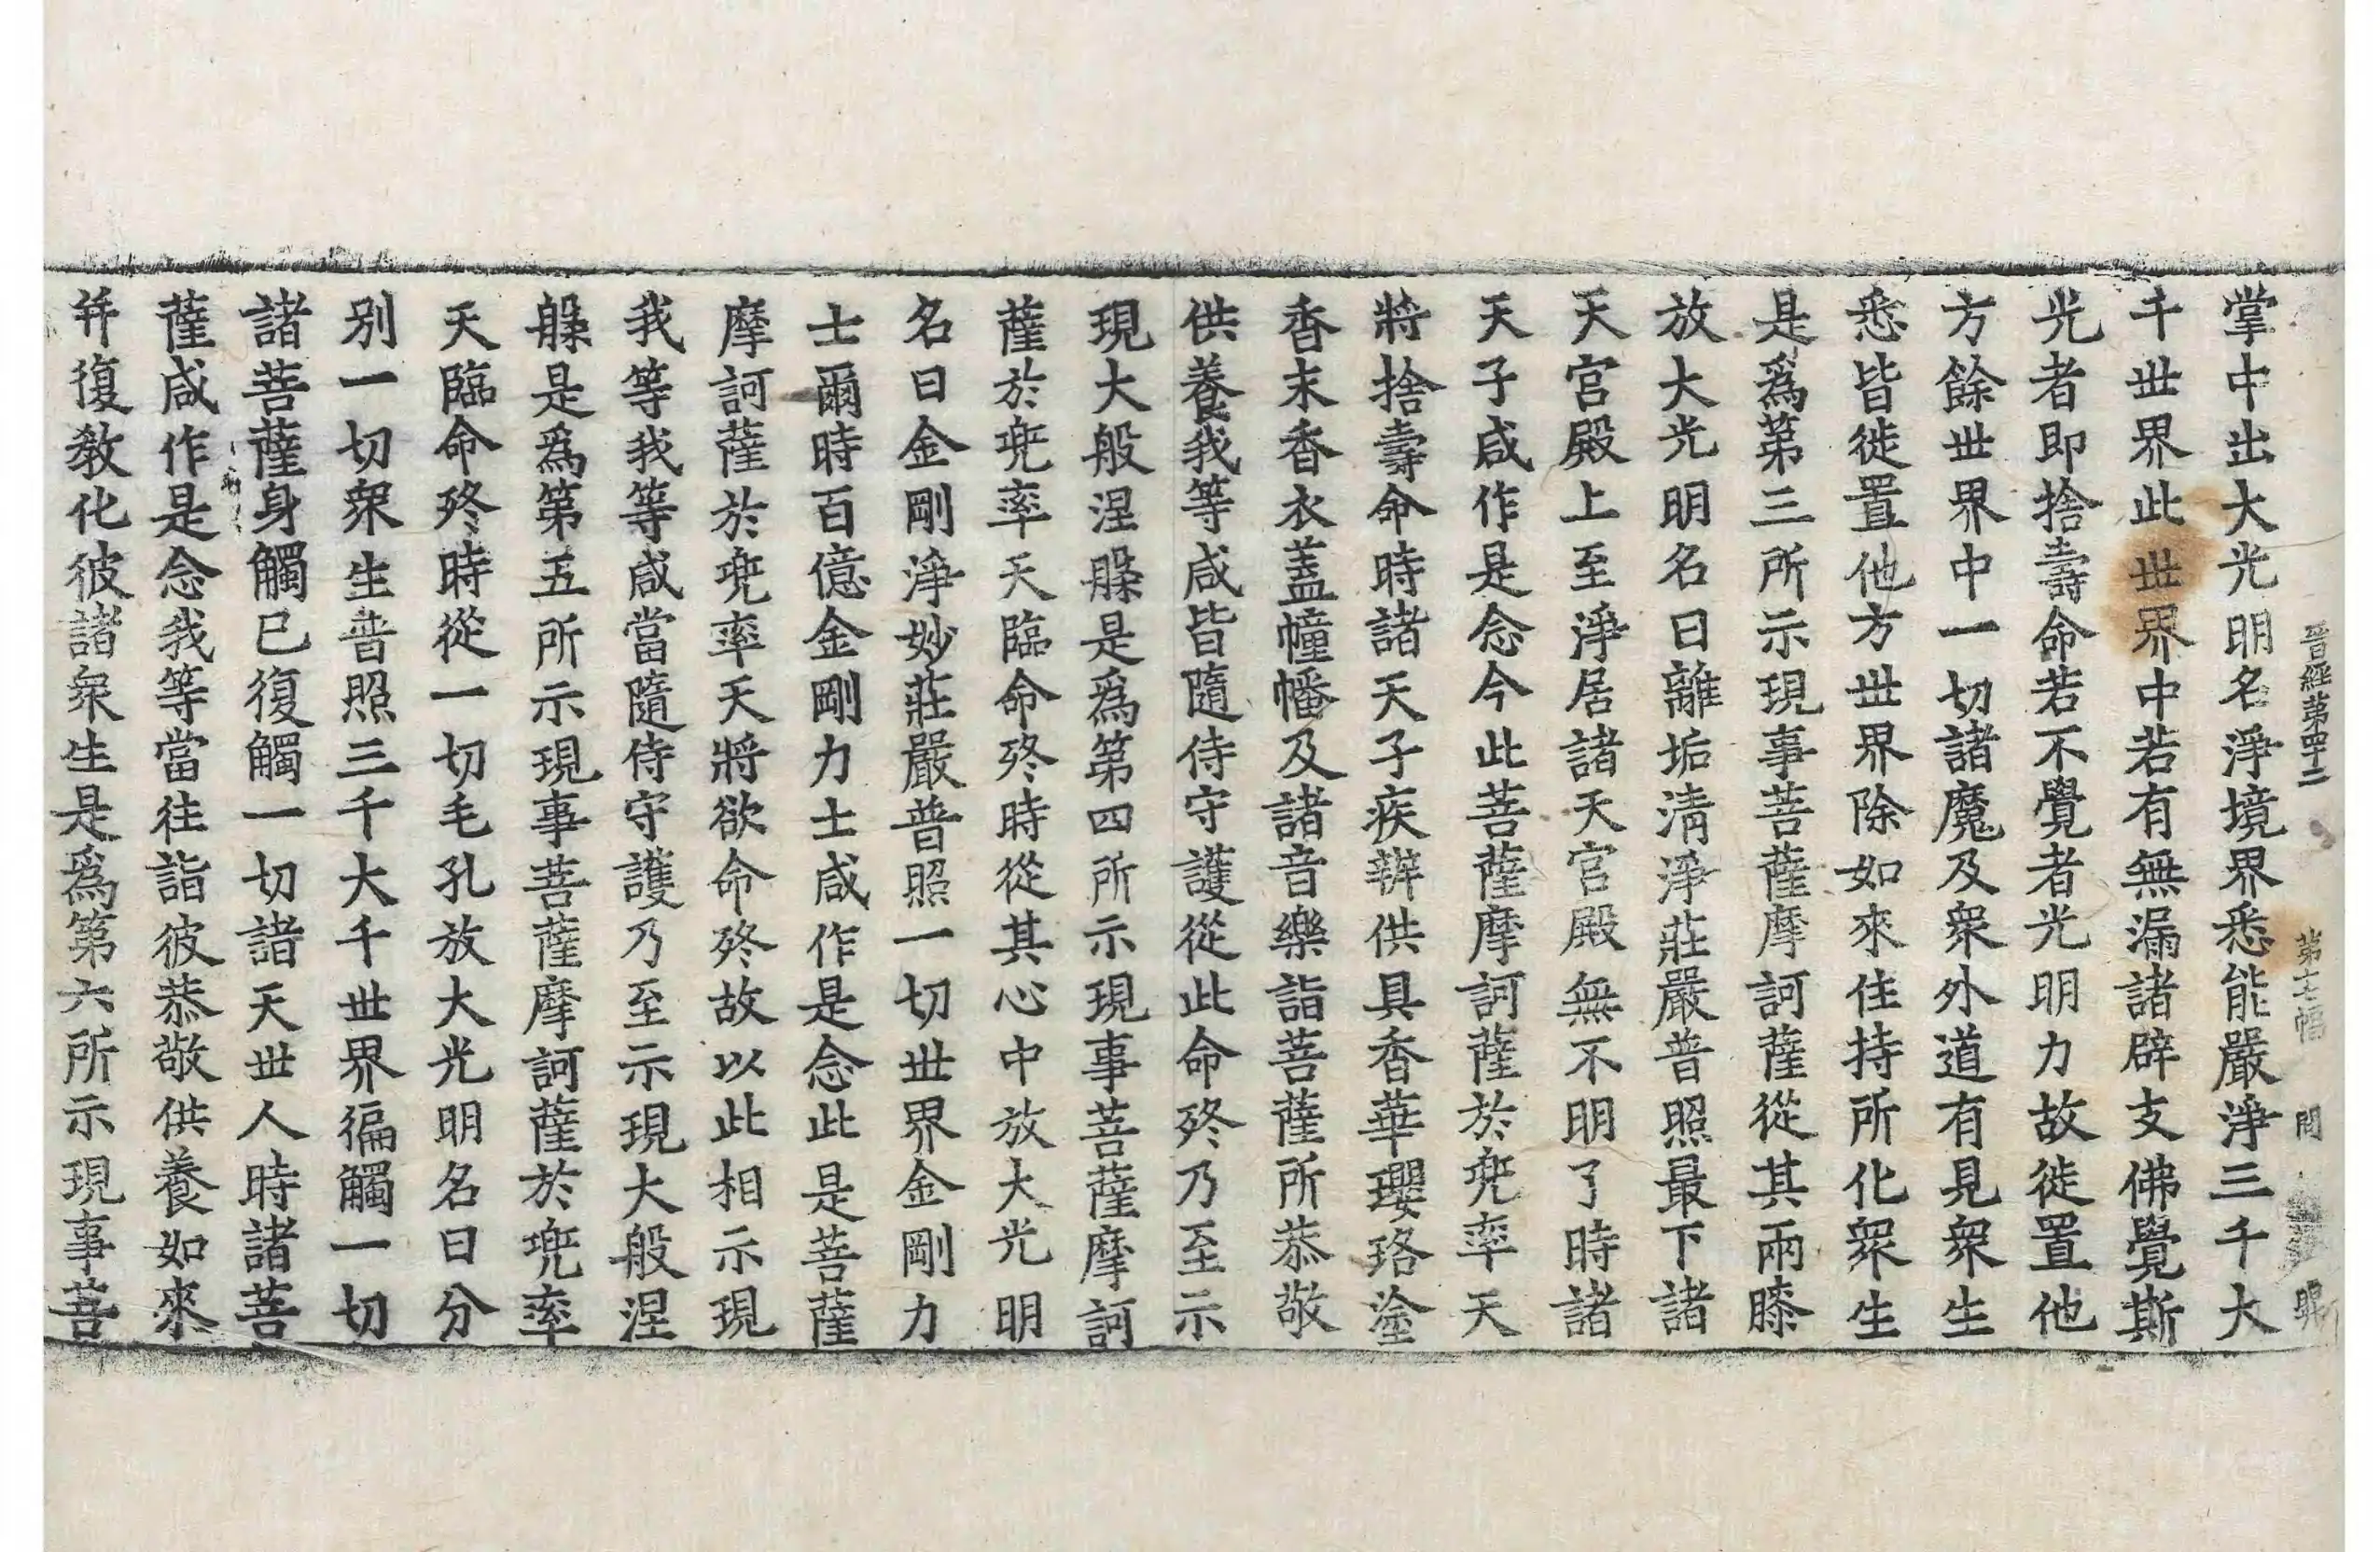 晋經第四十二 第十七幅 問
掌中出大光明名淨境界悉能嚴淨三千大
千世界此世界中若有無漏諸辟支佛覺斯
光者即捨壽命若不覺者光明力故徙置他
方餘世界中一切諸魔及衆外道有見衆生
悉皆徙置他方世界除如來住持所化衆生
是爲第三所示現事菩薩摩訶薩從其兩膝
放大光明名曰離垢清淨莊嚴普照最下諸
天宮殿上至淨居諸天宮殿無不明了時諸
天子咸作是念今此菩薩摩訶薩於兜率天
將捨壽命時諸天子疾辦供具香華瓔珞塗
香末香衣蓋幢幡及諸音樂詣菩薩所恭敬
供養我等咸皆隨侍守護從此命終乃至示
現大般涅槃是爲第四所示現事菩薩摩訶
薩於兜率天臨命終時從其心中放大光明
名曰金剛淨妙莊嚴普照一切世界金剛力
士爾時百億金剛力士咸作是念此是菩薩
摩訶薩於兜率天將欲命終故以此相示現
我等我等咸當隨侍守護乃至示現大般涅
槃是爲第五所示現事菩薩摩訶薩於兜率
天臨命終時從一切毛孔放大光明名曰分
别一切衆生普照三千大千世界徧觸一切
諸菩薩身觸已復觸一切諸天世人時諸菩
薩咸作是念我等當往詣彼恭敬供養如來
并復教化彼諸衆生是爲第六所示現事菩